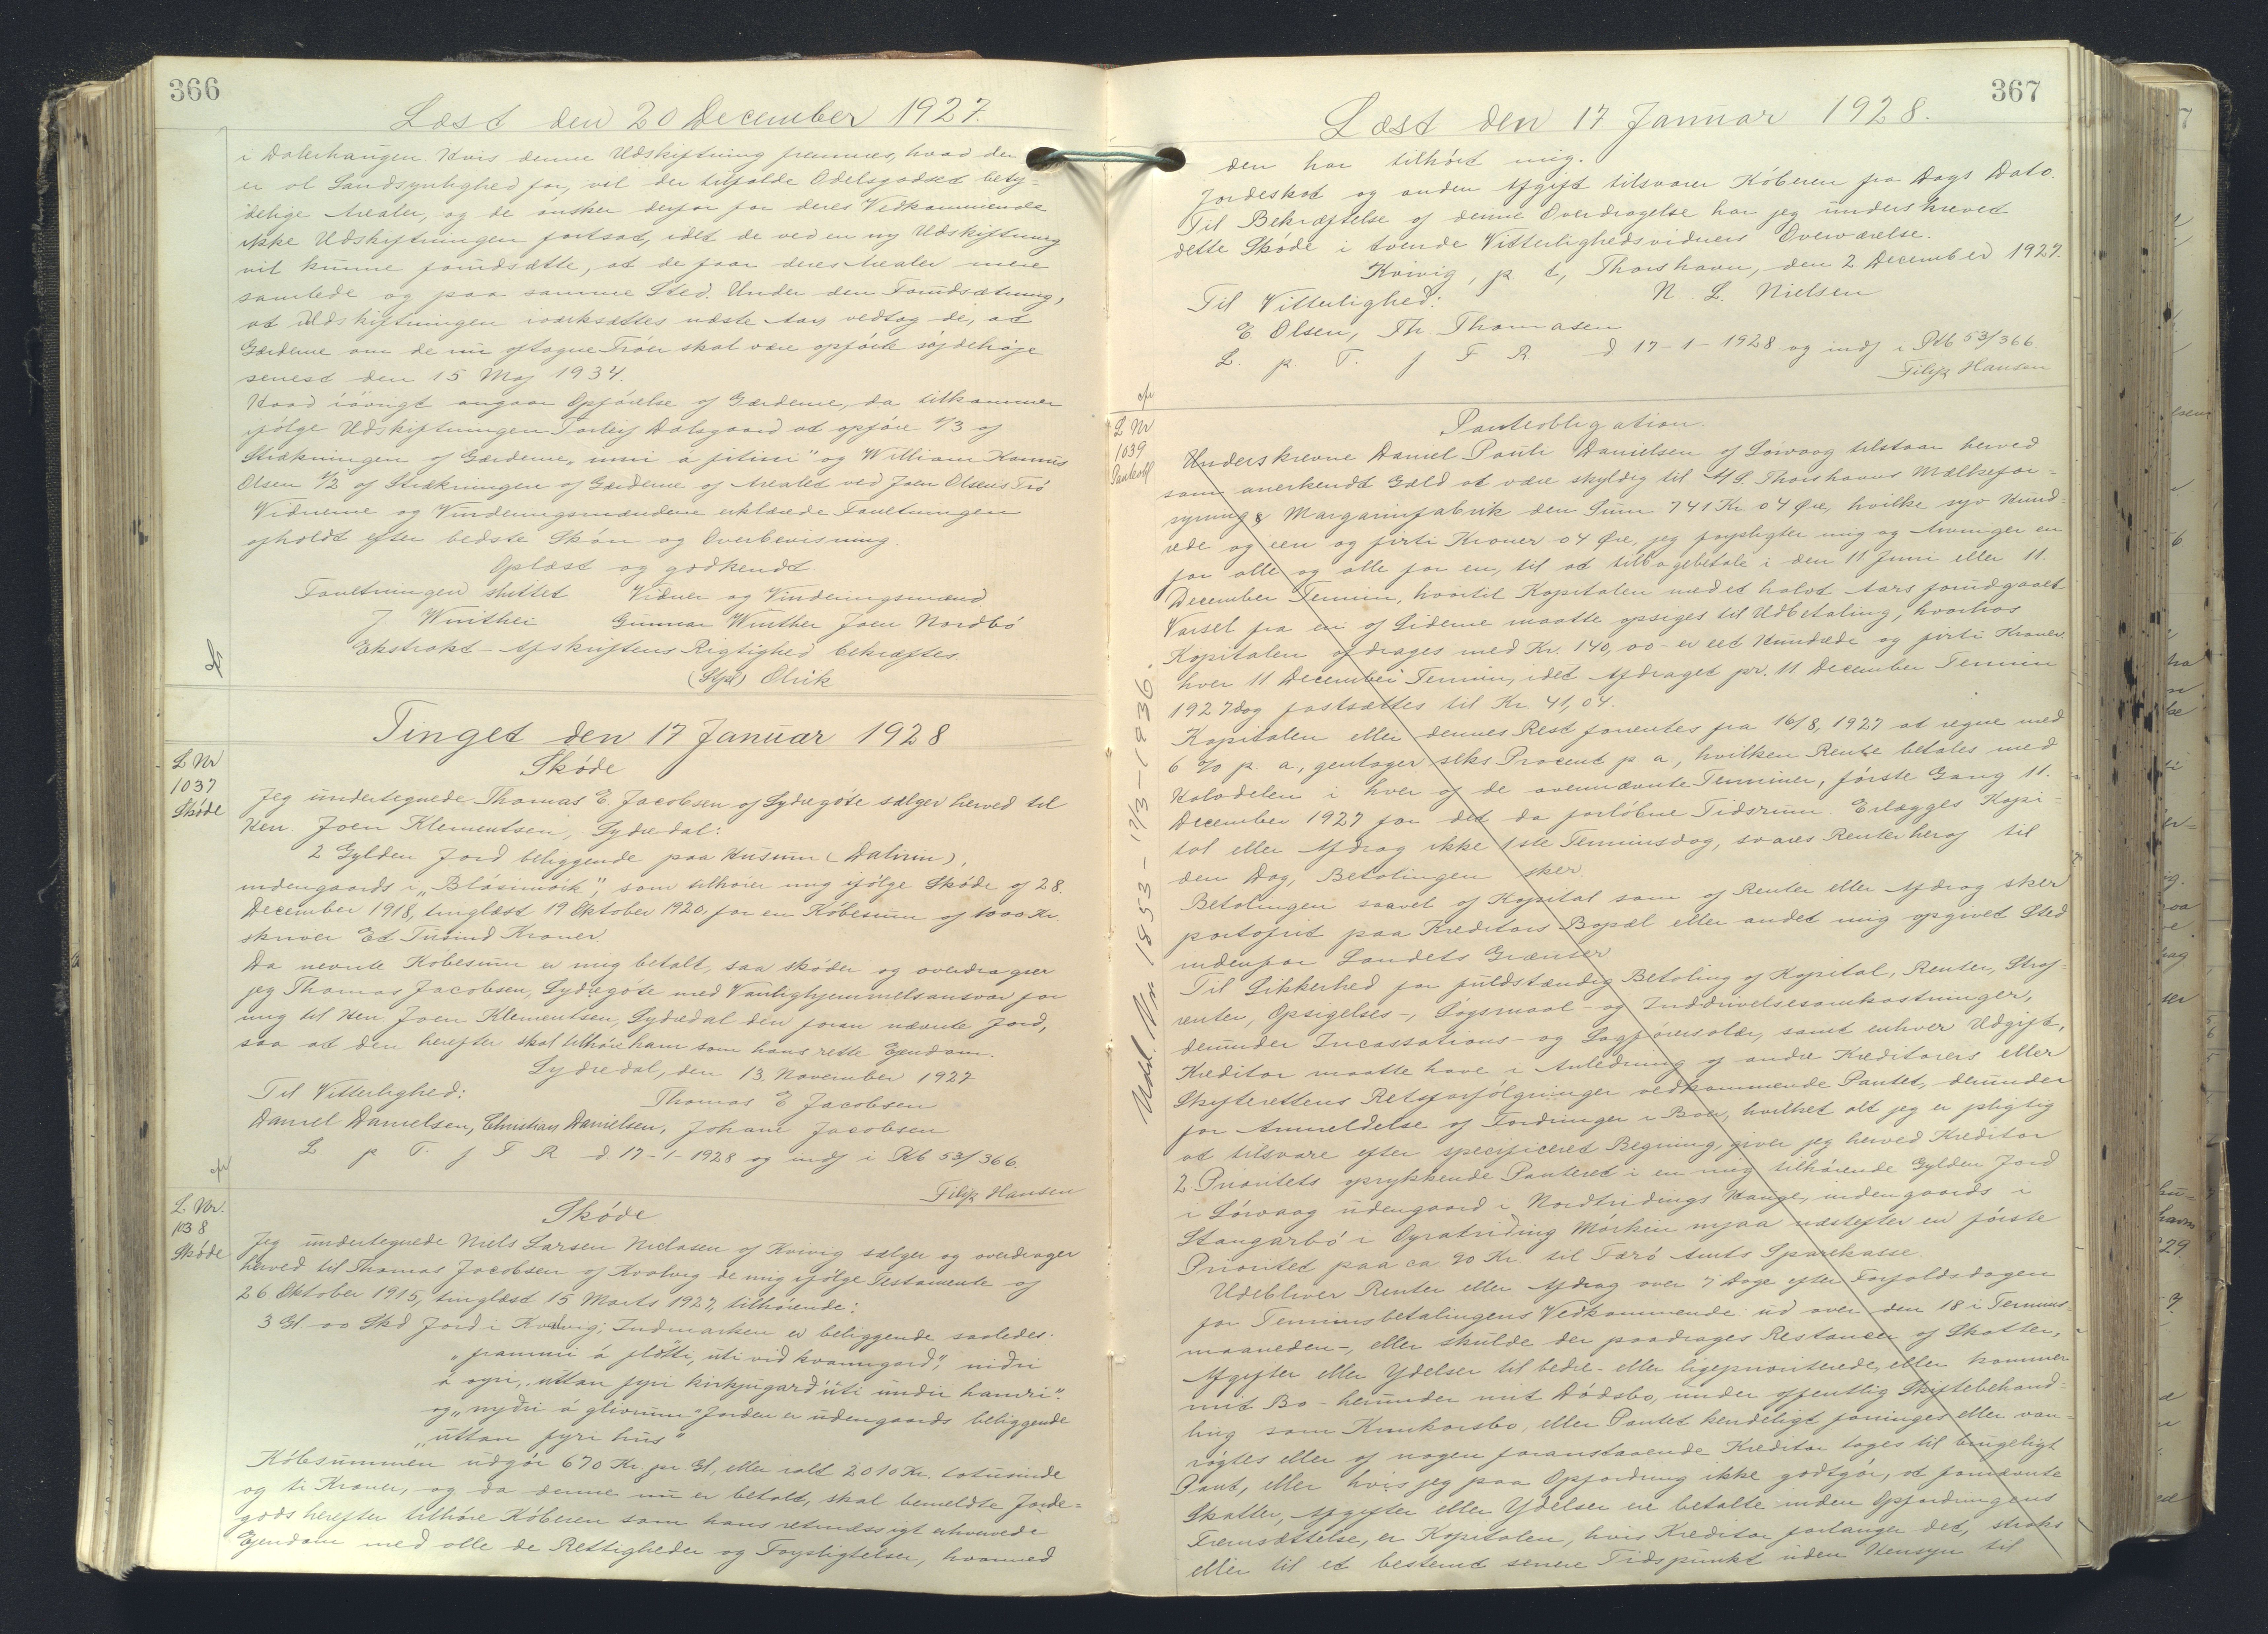 366
Læst den 20 December 1927.
i Dalerhaugen. Hvis denne Udskiftning fremmes, hvad der
er al Sandsynlighed for, vil der tilfalde Odelsgodset bety-
delige Arealer, og de ønsker derfor for deres Vedkommende
ikke Udskiftningen fortsat, idet de ved en ny Udskiftning
vil kunne forudsætte, at de faar deres Arealer mere
samlede og paa samme Sted. Under den Forudsætning,
at Udskiftningen iværksættes næste Aar, vedtog de, at
Gærderne om de nu aftagne Trøer skal være opførte
senest den 15 Maj 1934.
Hvad iøvrigt angaar Opførelse af Gærderne, da tilkommer
ifølge Udskiftningen Dalsgaard at opføre 1/3 af
Strækningen af Gærderne og William
Olsen 1/2 af Strækningen af Gærderne af Arealet ved Joen Olsens Trø
Vidnerne og Vurderingsmændene erklærede Forretningen
afholdt efter bedste Skøn og Overbevisning.
Oplæst og godkendt
Forretningen sluttet Vidner og Vurderingsmænd
J Winther Gunnar Winther Joen Nordbø
Ekstrakt-Afskriftens Rigtighed bekræftes
(Stpl) Olrik
Tinget den 17 Januar 1928
L Nr
1037
Skøde
Skøde
Jeg undertegnede Thomas E. Jacobsen af Sydregøte sælger herved til
Herr. Joen Klementsen, Sydredal:
2 Gylden Jord beliggende paa Husum (Dalinin),
indengaards i som tilhører mig ifølge Skøde af 28.
December 1918, tinglæst 19 Oktober 1920, for en Købesum af 1000 Kr.
skriver Et Tusind Kroner.
Da nevnte Købesum er mig betalt, saa skøder og overdrager
jeg Thomas Jacobsen, Sydregøte med Vanlighjemmelsansvar for
mig til Herr Joen Klementsen, Sydredal den foran nævnte Jord,
saa at den herefter skal tilhøre ham som hans rette Ejendom.
Sydredal, den 13. November 1927
Til Vitterlighed: Thomas E Jacobsen
Daniel Danielsen, Christian Danielsen, Johane Jacobsen
L p T. f F R d 17-1-1928 og indf i Pb 53/366.
Filip Hansen
L Nr.
1038
Skøde
Skøde
Jeg undertegnede Niels Larsen Niclasen af Kvivig sælger og overdrager
herved til Thomas Jacobsen af Kvalvig de mig ifølge Testamente af
26 Oktober 1915, tinglæst 15 Marts 1927, tilhørende:
3 Gl 00 Skd Jord i Kvalvig; Indmarken er beliggende saaledes.
"frammi á fløtti, uti við kvanngard", niðri
á oyri, "uttan fyri kirkjugard" "úti undir hamri".
og "nyðri á glivrum" Jorden er udengaards beliggende
"uttan fyri hús"
Købsummen udgør 670 Kr. pr. Gl, eller ialt 2010 Kr. totusinde
og ti Kroner, og da denne nu er betalt, skal bemeldte Jorde-
gods herefter tilhøre Køberen som hans retmæssigt erhvervede
Ejendom med alle de Rettigheder og Forpligtelser, hvormed
367
Læst den 17 Januar 1928.
den har tilhørt mig.
Jordeskat og anden Afgift tilsvarer Køberen fra Dags Dato.
Til Bekræftelse af denne Overdragelse har jeg underskrevet
dette Skøde i tvende Vitterlighedsvidners Overværelse.
Kvivig, p t, Thorshavn, den 2 December 1927.
Til Vitterlighed: N. L. Nielsen
E Olsen, Th. Thomasen
L. p T. f F R d 17-1-1928 og indf i Pb 53/366.
Filip Hansen
L Nr
1039
Pantobl
Panteobligation.
Underskrevne Daniel Pauli Danielsen af Sørvaag tilstaar herved
som anerkendt Gæld at være skyldig til A/S. Thorshavns Mælkefor-
syning & Margarinfabrik den Sum 741 Kr 04 Øre, hvilke syv Hund-
rede og een og firti Kroner 04 Øre, jeg forpligter mig og Arvinger en
for alle og alle for en, til at tilbagebetale i den 11 Juni eller 11.
December Termin, hvortil Kapitalen med et halvt Aars forudgaaet
Varsel fra en af Siderne maatte opsiges til Udbetaling, hvorhos
Kapitalen afdrages med Kr. 140,00 - er eet Hundrede og firti Kroner.
hver 11 December Termin, idet Afdraget pr. 11 December Termin
1927 dog fastsættes til Kr. 41,04.
Kapitalen eller dennes Rest forrentes fra 16/8, 1927 at regne med
6 % p. a, gentager seks Procent p a, hvilken Rente betales med
Halvdelen i hver af de ovennævnte Terminer, første Gang 11.
December 1927 for det da forløbne Tidsrum. Erlægges Kapi-
tal eller Afdrag ikke 1ste Terminsdag, svares Renter heraf til
den Dag, Betalingen sker.
Betalingen saavel af Kapital som af Renter eller Afdrag sker
portofrit paa Kreditors Bopæl eller andet mig opgivet Sted
indenfor Landets Grænser
Til Sikkerhed for fuldstændig Betaling af Kapital, Renter, Straf-
renter, Opsigelses-, Søgsmaal- og Inddrivelsesomkostninger,
derunder Incassations- og Sagførersalær, samt enhver Udgift,
Kreditor maatte have i Anledning af andre Kreditorers eller
Skifterettens Retsforfølgninger vedkommende Pantet, derunder
for Anmeldelse af Fordringer i Boer, hvilket alt jeg er pligtig
at tilsvare efter specificeret Regning, giver jeg herved Kreditor
2 Prioritets oprykkende Panteret i en mig tilhørende Gylden Jord
i Sørvaag udengaard i Nordtridings Hauge, indengaards i
Stangarbø i Oyratriding Mørkin næstefter en første
Prioritet paa ca 90 Kr til Færø Amts Sparekasse.
Udebliver Renter eller Afdrag over 7 Dage efter Forfaldsdagen
for Terminsbetalingens Vedkommende ud over den 18 i Termins-
maaneden-, eller skulde der paadrages Restancer af Skatter,
Afgifter eller Ydelser til bedre- eller ligeprioriterede, eller kommer
mit Bo - herunder mit Dødsbo, under offentlig Skiftebehand-
ling som Konkursbo, eller Pantet kendeligt forringes eller van-
røgtes eller af nogen foranstaaende Kreditor tages til brugeligt
Pant, eller hvis jeg paa Opfordring ikke godtgør, at fornævnte
Skatter, Afgifter eller Ydelser ere betalte inden Opfordringens
Fremsættelse, er Kapitalen, hvis Kreditor forlanger det, straks
eller til et bestemt senere Tidspunkt uden Hensyn til
Udsl. Nr 1853 - 17/3 - 1936.